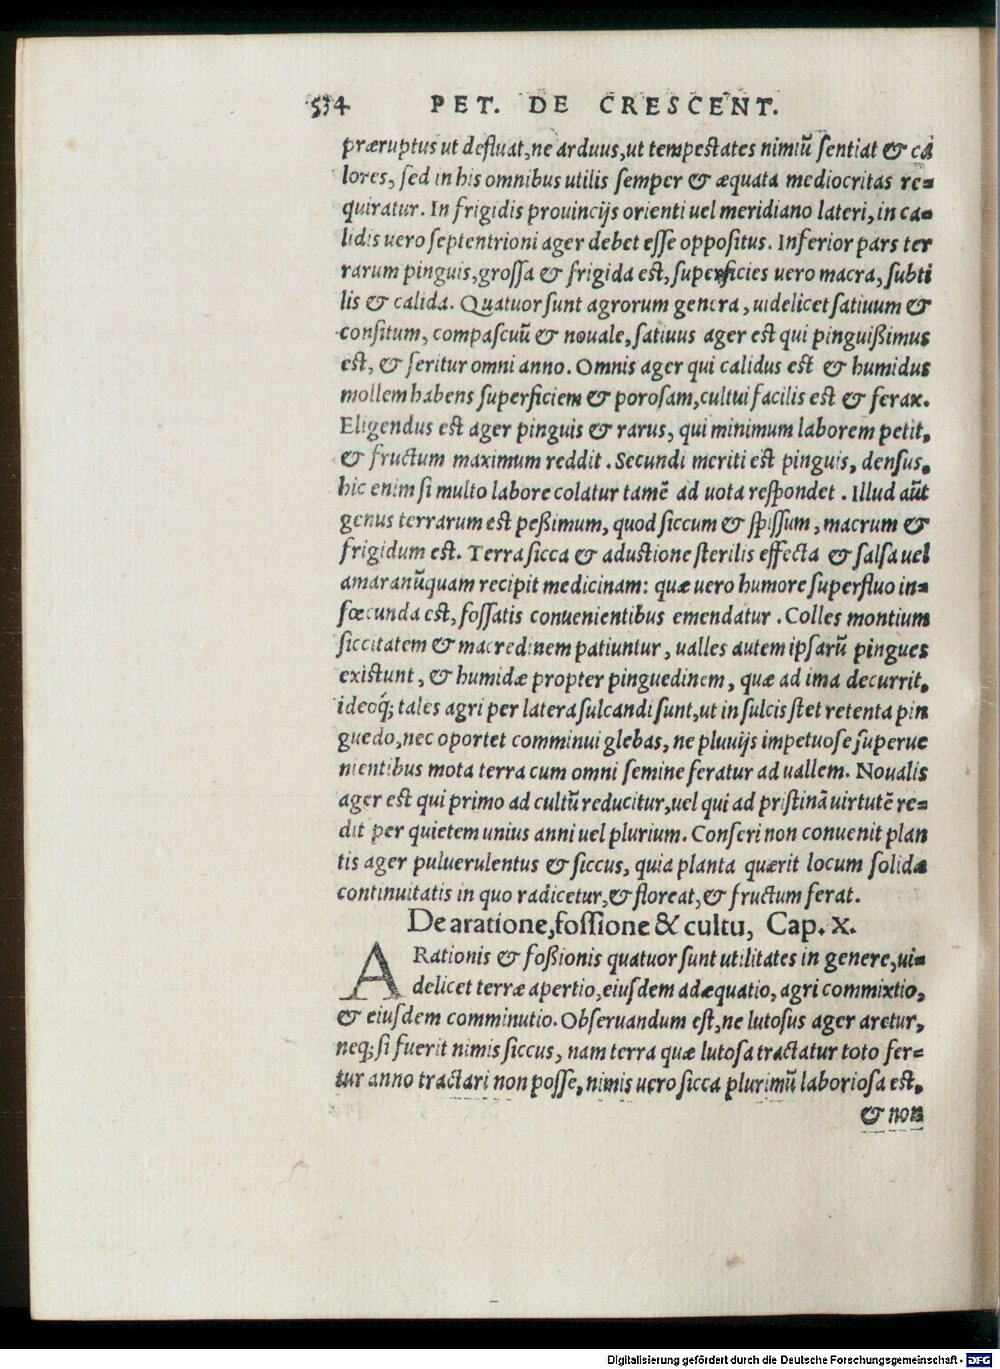 534 PET. DE CRESCENT.
præruptus ut defluat, ne arduus, ut tempestates nimiũ sentiat & ca
lores, sed in his omnibus utilis semper & æquata mediocritas re=
quiratur. In frigidis prouincijs orienti uel meridiano lateri, in ca=
lidis uero septentrioni ager debet esse oppositus. Inferior pars ter
rarum pinguis, grossa & frigida est, superficies uero macra, subti
lis & calida. Quatuor sunt agrorum genera, uidelicet satiuum &
consitum, compascuũ & nouale, satiuus ager est qui pinguißimus
est, & seritur omni anno. Omnis ager qui calidus est & humidus
mollem habens superficiem & porosam, cultui facilis est & ferax.
Eligendus est ager pinguis & rarus, qui minimum laborem petit,
& fructum maximum reddit. Secundi meriti est pinguis, densus,
hic enim si multo labore colatur tamẽ ad uota respondet. Illud aũt
genus terrarum est peßimum, quod siccum & spissum, macrum &
frigidum est. Terra sicca & adustione sterilis effecta & salsa uel
amara nũquam recipit medicinam: quæ uero humore superfluo in=
fœcunda est, fossatis conuenientibus emendatur. Colles montium
siccitatem & macredinem patiuntur, ualles autem ipsarũ pingues
existunt, & humidæ propter pinguedinem, quæ ad ima decurrit,
ideoq́; tales agri per latera sulcandi sunt, ut in sulcis stet retenta pin
guedo, nec oportet comminui glebas, ne pluuijs impetuose superue
nientibus mota terra cum omni semine feratur ad uallem. Noualis
ager est qui primo ad cultũ reducitur, uel qui ad pristinã uirtutẽ re=
dit per quietem unius anni uel plurium. Conseri non conuenit plan
tis ager puluerulentus & siccus, quia planta quærit locum solidæ
continuitatis in quo radicetur, & floreat, & fructum ferat.
De aratione, fossione & cultu, Cap. X.
ARationis & foßionis quatuor sunt utilitates in genere, ui=
delicet terræ apertio, eiusdem adæquatio, agri commixtio,
& eiusdem comminutio. Obseruandum est, ne lutosus ager aretur,
neq; si fuerit nimis siccus, nam terra quæ lutosa tractatur toto fer=
tur anno tractari non posse, nimis uero sicca plurimũ laboriosa est,
& non
Digitalisierung gefördert durch die Deutsche Forschungsgemeinschaft - DFG